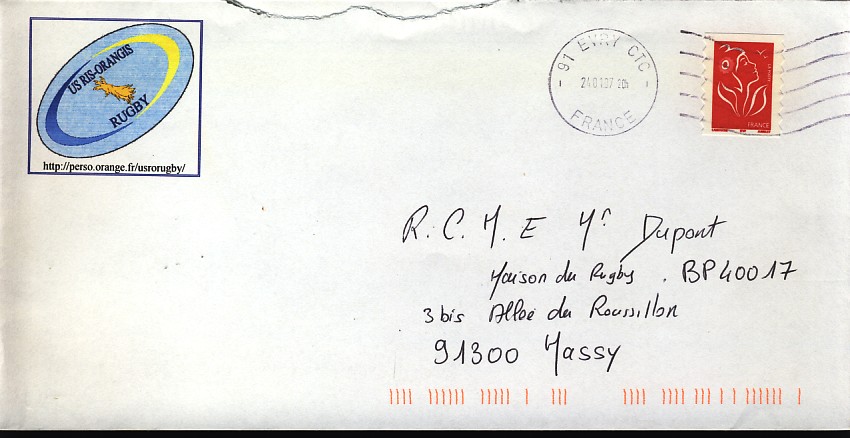 US RIS-ORANGIS
RUGBY
http://perso.orange.fr/usrorugby/
91 EVRY CTC
FRANCE
LA POSTE
FRANCE
R. C. M. E Mr Dupont
Maison du Rugby . BP40017
3 bis Allée du Roussillon
91300 Massy